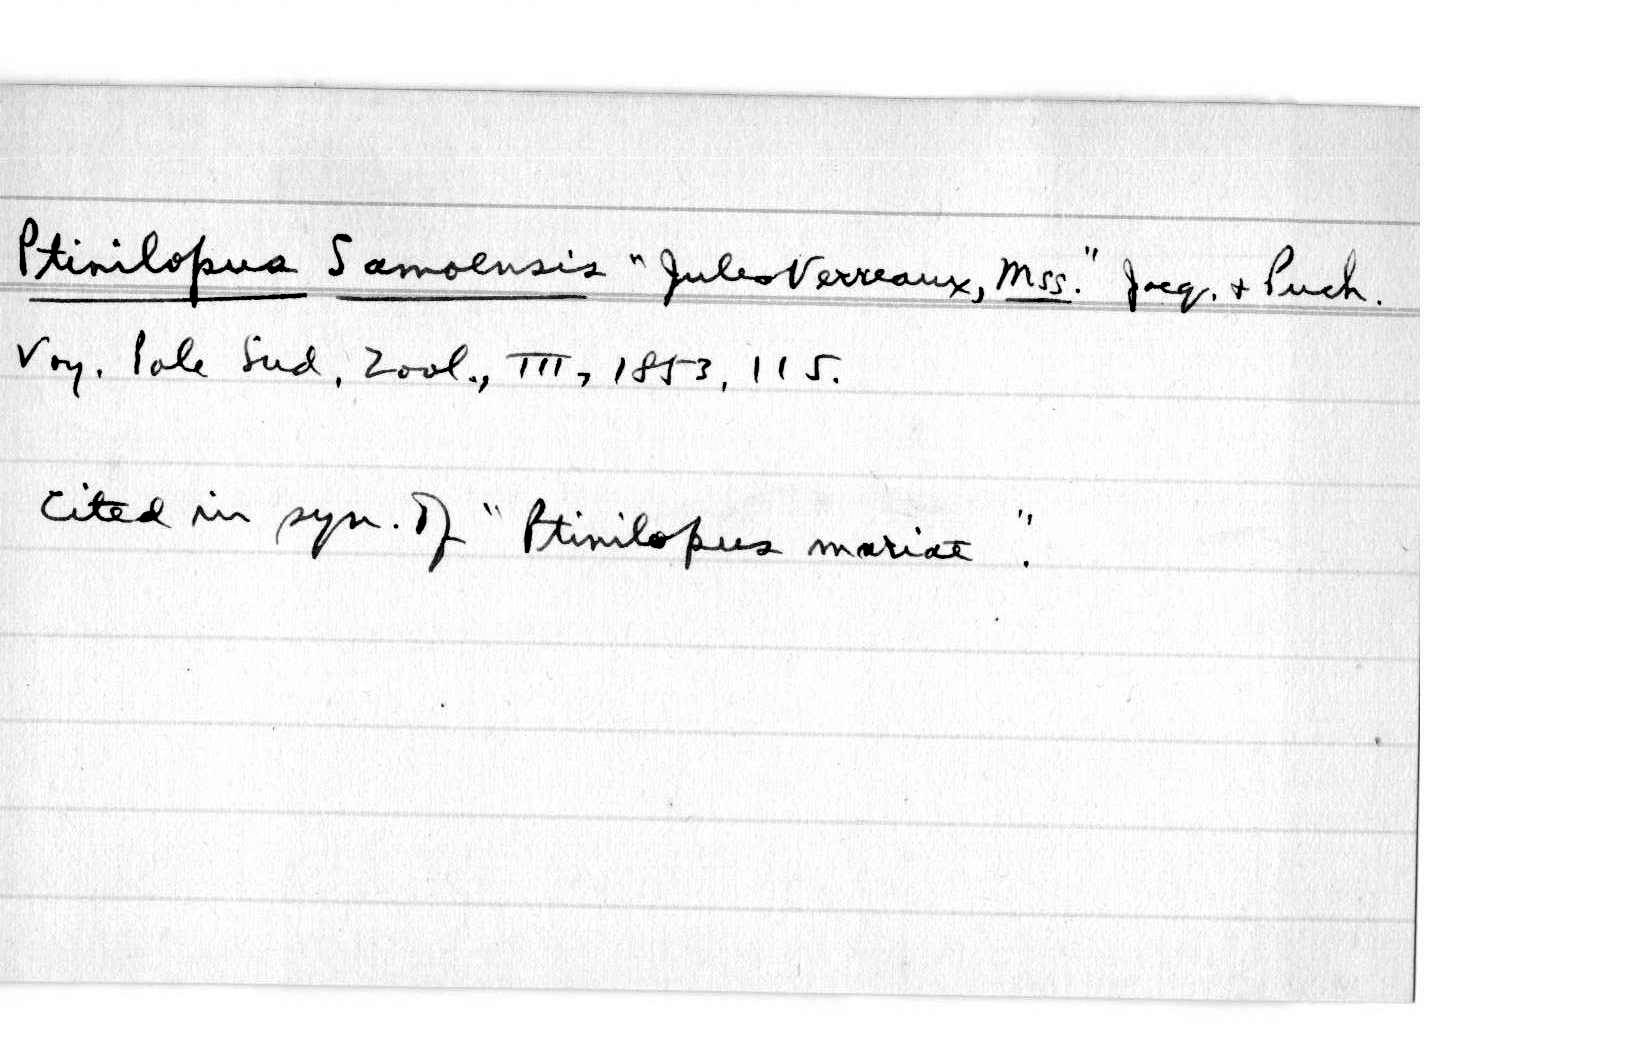 Ptinilopus Samoensis "Jules Verreaux, Mss." Jacq. + Puch.
Voy. Pole Sud, Zool., III, 1853, 115.
Cited in syn. of "Ptinilopus mariae".